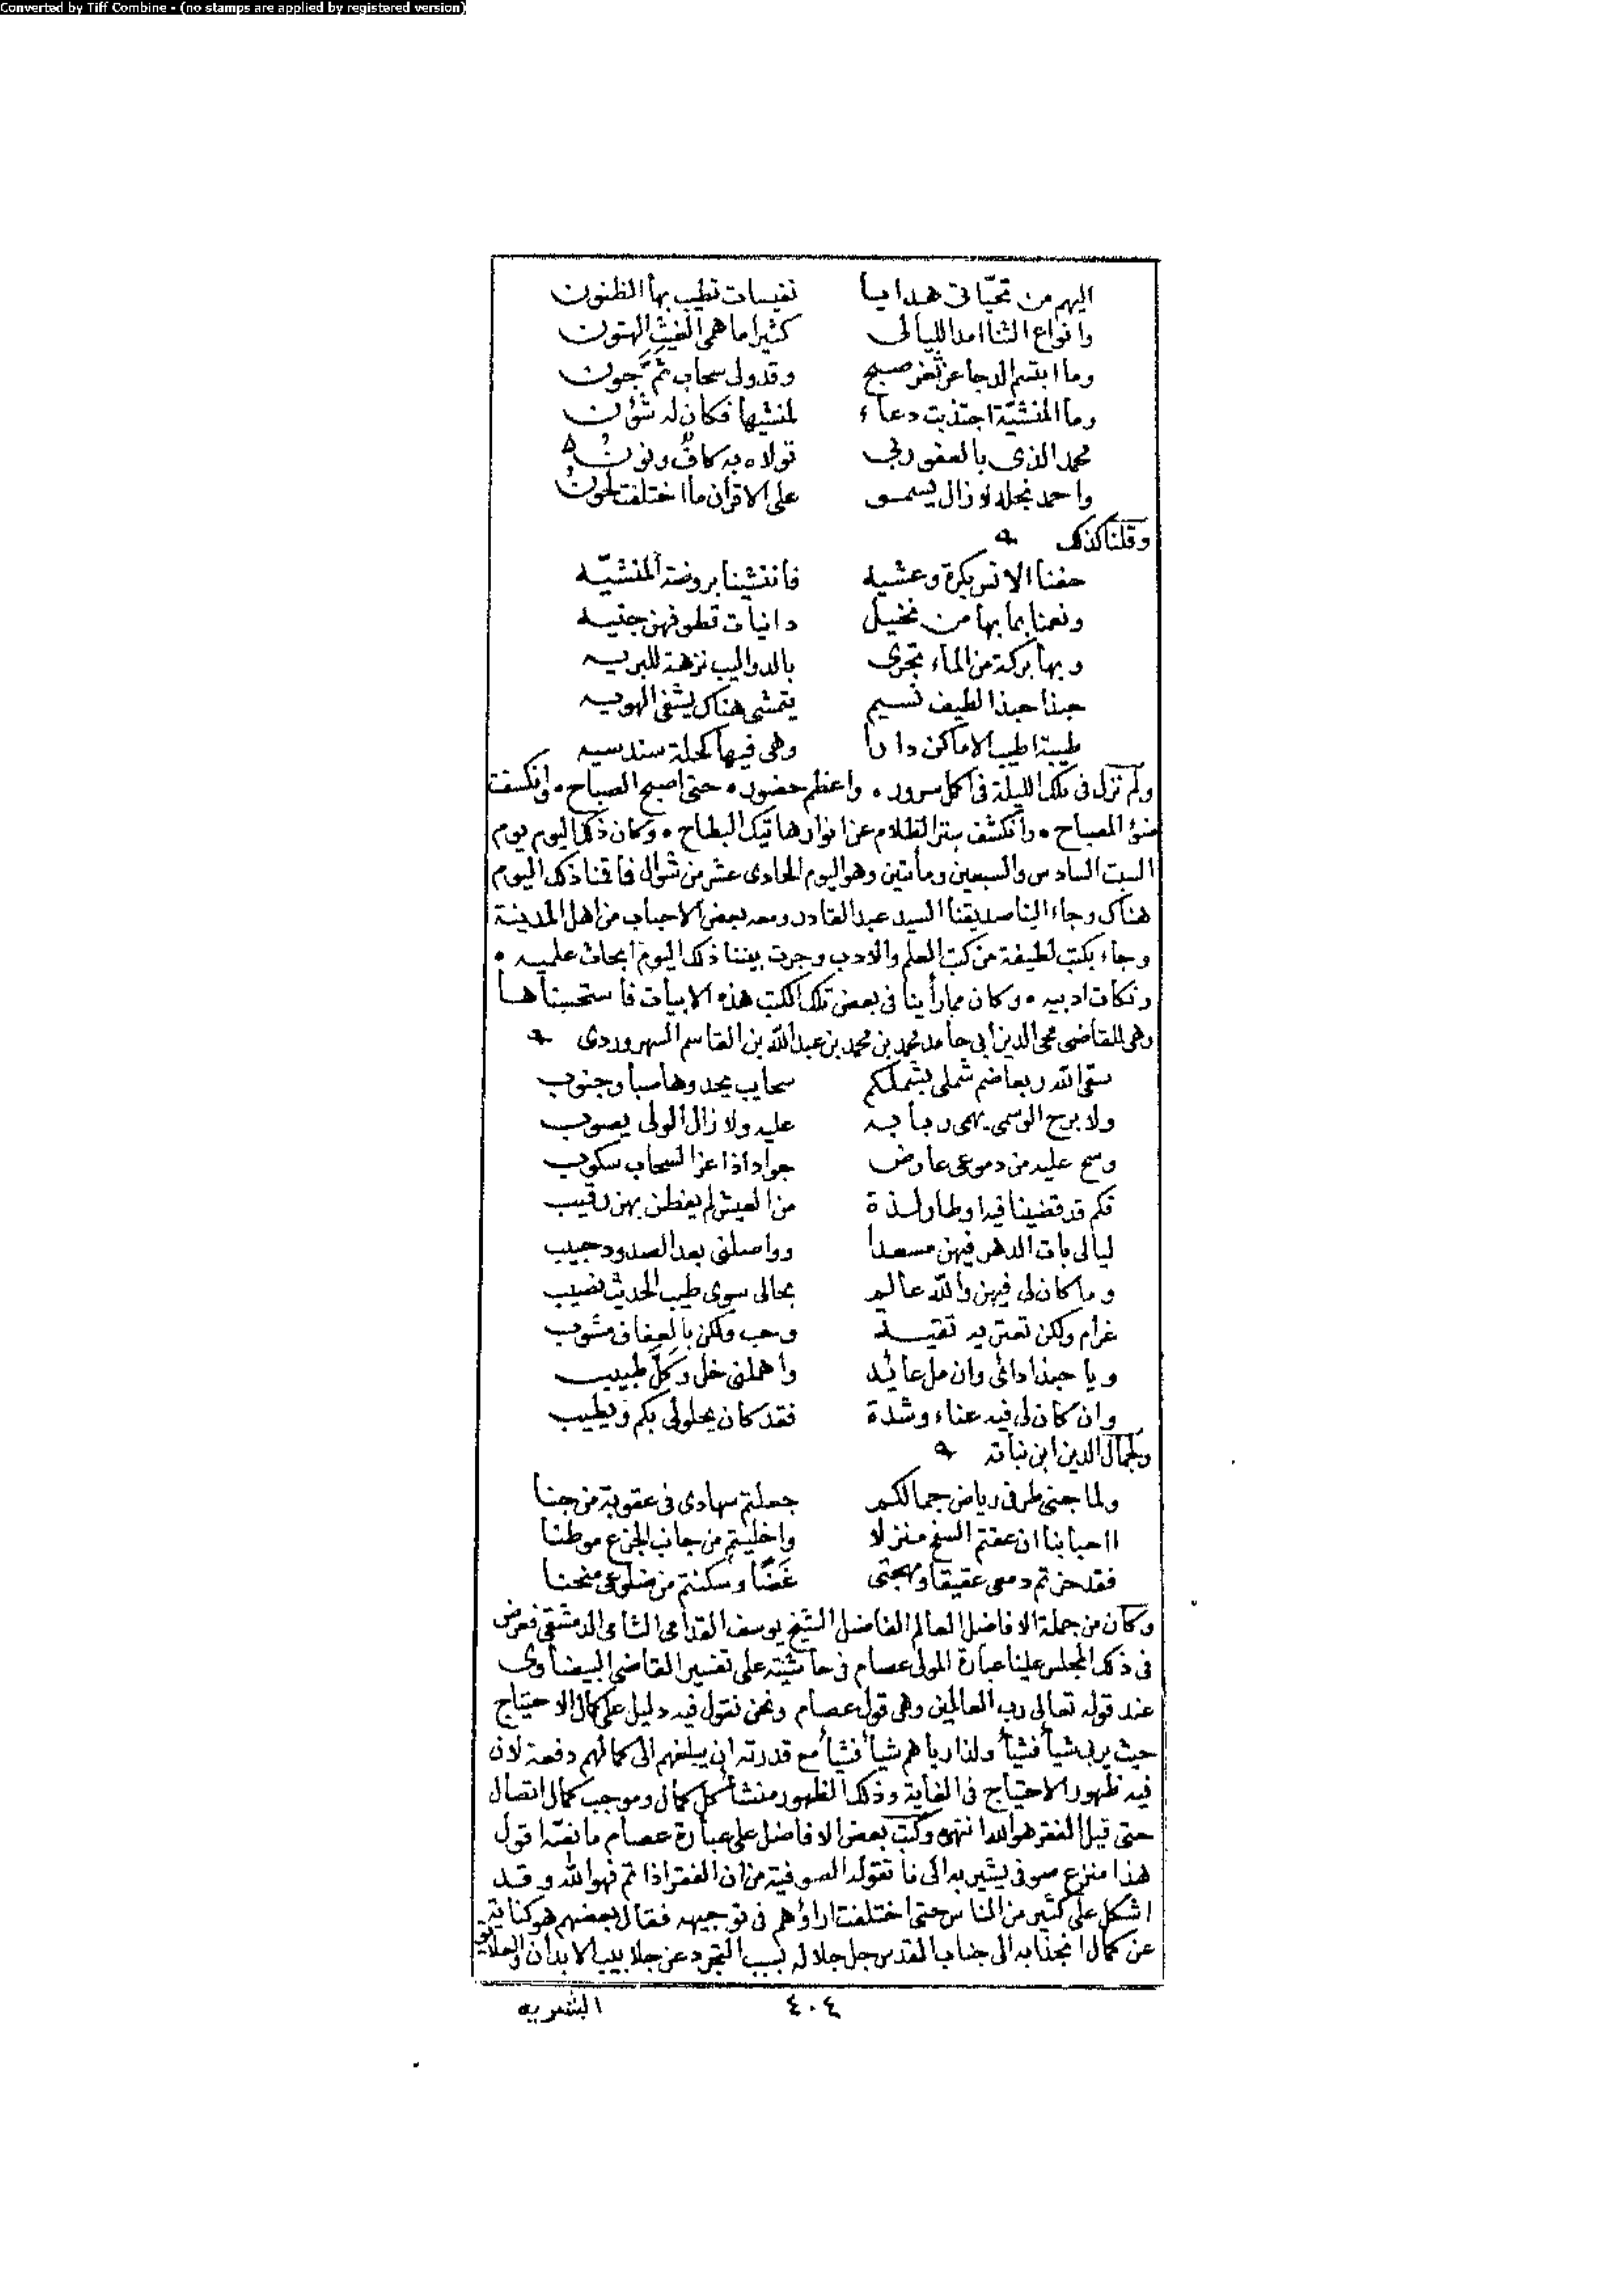 Converted by Tiff Combine - (no stamps are applied by registered version)
اليهم من تحياتى هدايا نفيسات تطيب بها الظنون
وانواع الثنا امد الليالى كثيرا ما همى الغيث الهتون
وما ابتسم الدجا عن ثغر صبح وقد ولى سحاب ثم جون
وما المنشيّة اجتذبت دعاء لمنشيها فكان له شؤن
محمد الذى بالعفو ربى تولاه به كاف ونون
واحمد نجله لا زال يسمو على الاقران ما اختلفت لحون
وقلنا كذلك
حفنا الانس بكرة وعشيه فانتشينا بروضة المنشيّه
ونعمنا بما بها من نخيل دانيات قطوفهن جنيه
وبها بركة من الماء تجرى بالدواليب نزهة للبريه
حبذا حبذا لطيف نسيم يتمشى هناك يشفى الهويه
طيبة اطيب الاماكن دارا وهى فيها كحلة سندسيه
ولم نزل فى تلك الليلة فى اكمل سرور • واعظم حضور • حتى اصبح الصباح • وانكسفت
ضوء المصباح • وانكشف ستر الظلام عن انوار هاتيك البطاح • وكان ذلك اليوم يوم
السبت السادس والسبعين ومأتين وهو اليوم الحادى عشر من شوال فاقمنا ذلك اليوم
هناك وجاء الينا صديقنا السيد عبد القادر ومعه بعض الاحباب من اهل المدينة
وجاء بكتب لطيفة من كتب العلم والادب وجرت بيننا ذلك اليوم ابحاث علميه •
ونكات ادبيه • وكان مما رأينا فى بعض تلك الكتب هذه الابيات فاستحسناها
وهى للقاضى محى الدين ابى حامد محمد بن محمد بن عبد الله بن القاسم السهروردى
سقى الله ربعا ضم شملى بشملكم سحايب يحدوها صبا وجنوب
ولا برح الوسمى يهمى ربابه عليه ولا زال الولى يصوب
وسح عليه من دموعى عارض جواد اذا عز السحاب سكوب
فكم قد قضينا فيه اوطار لذة من العيش لم يفطن بهن رقيب
ليالى بات الدهر فيهن مسعدا وواصلنى بعد الصدود حبيب
وما كان لى فيهن والله عالم بحالى سوى طيب الحديث نصيب
غرام ولكن تعتريه تقيـة وحب ولكن بالعفاف مشوب
ويا حبذا دائى وان مل عائد واهملنى خل وكل طبيب
وان كان لى فيه عناء وشدة فقد كان يحلو لى بكم ويطيب
ولجمال الدين ابن نباته
ولما جنى طرفى رياض جمالكم جعلتم سهادى فى عقوبة من جنا
ااحبابنا ان عفتم السفح منزلا واخليتم من جانب الجزع موطنا
فقد حزتم دمعى عقيقا ومهجتى غضًا وسكنتم من ضلوعى منحنا
وكان من جملة الافاضل العالم الفاضل الشيخ يوسف القدامى الشامى الدمشقى فعرض
فى ذلك المجلس علينا عبارة المولى عصام فى حاشيته على تفسير القاضى البيضاوى
عند قوله تعالى رب العالمين وهى قول عصام ونحن نقول فيه دليل على كمال الاحتياج
حيث يربى شيأ فشيأ ولذا رباهم شيأ فشيأ مع قدرته ان يبلغهم الى كمالهم دفعة لان
فيه ظهور الاحتياج فى الغاية وذلك الظهور منشأ كل كمال وموجب كمال اتصال
حتى قيل الفقر هو الله انتهى وكتب بعض الافاضل على عبارة عصام ما نصّه اقول
هذا منزع صوفى يشير به الى ما تقوله الصوفية من ان الفقر اذا تم فهو الله وقـد
اشكل على كثير من الناس حتى اختلفت اراؤهم فى توجيهه فقال بعضهم هو كناية
عن كمال انجذابه الى جناب القدس جل جلاله بسبب التجرد عن جلابيب الابدان والعلايق
٤٠٤ البشريه